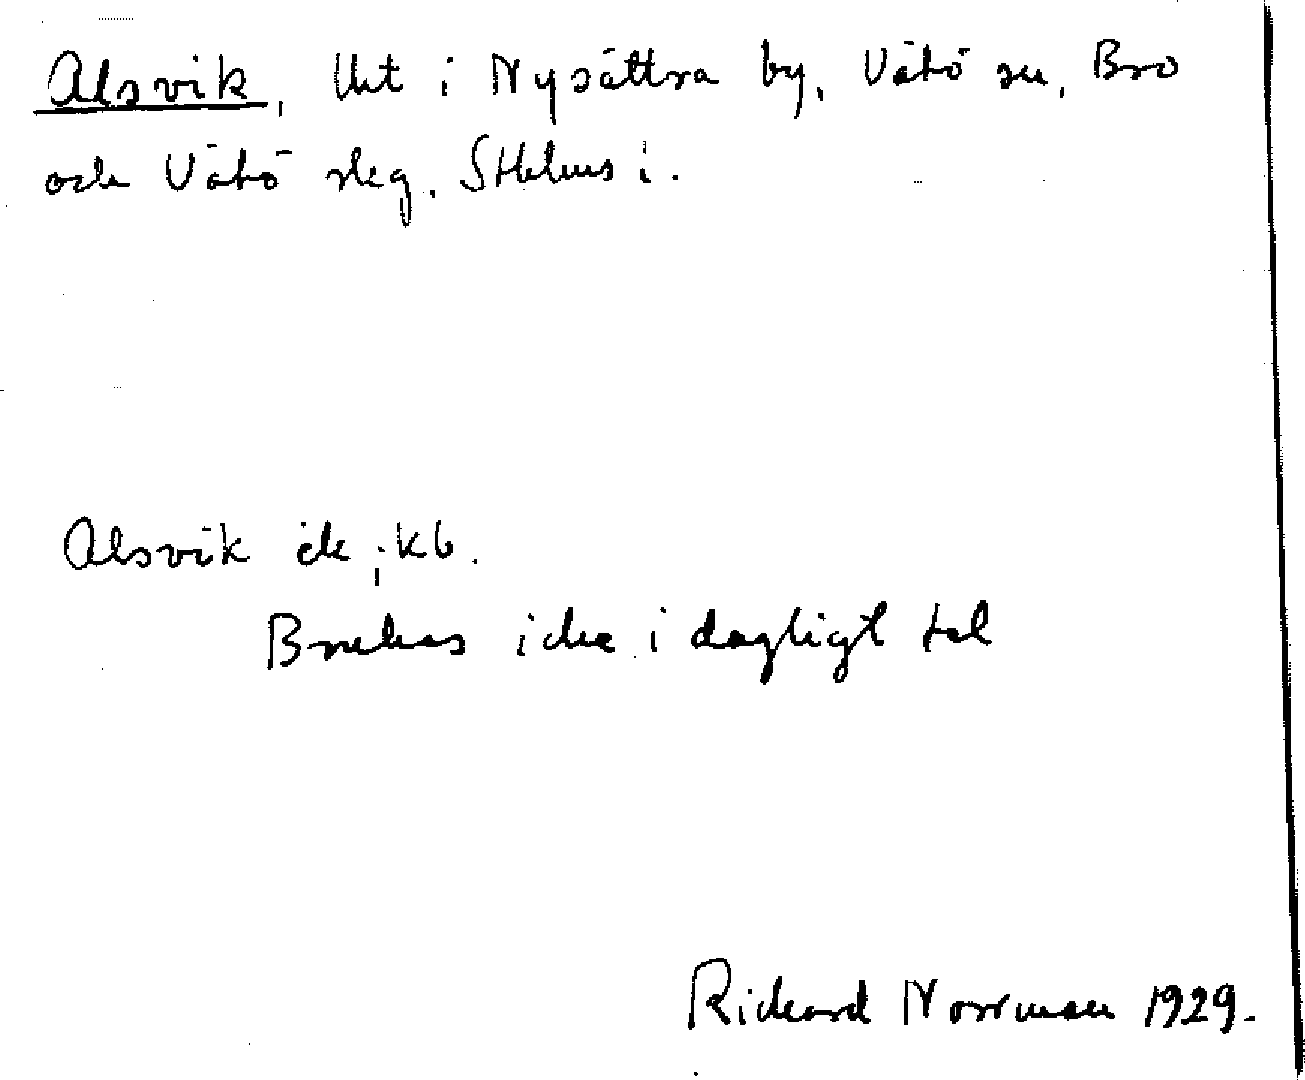 Alsvik, lht i Nysättra by, Vätö sn, Bro
och Vätö skg. Sthlms i.
Alsvik ek; kb.
Brukas icke i dagligt tal
Rickard Norrman 1929.